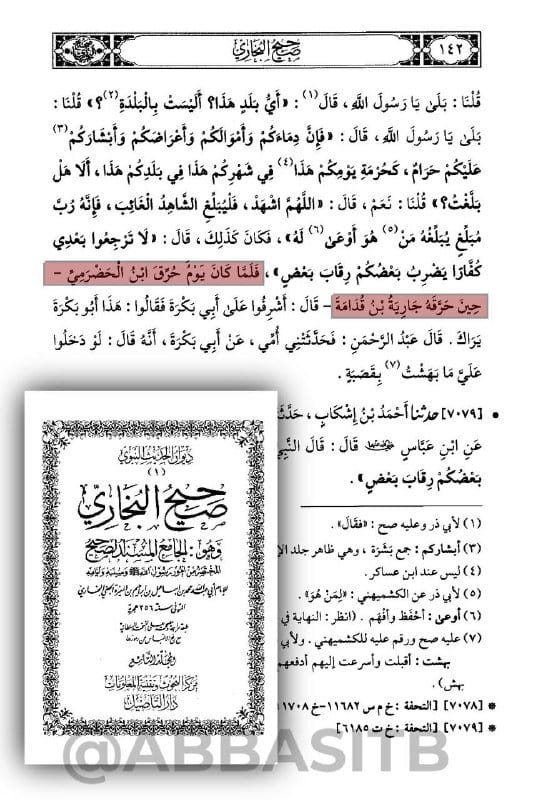 صحيح البخاري
١٤٢
قُلْنَا : بَلَىٰ يَا رَسُولَ اللَّهِ ، قَالَ(١) : «أَيُّ بَلَدٍ هَذَا؟ أَلَيْسَتْ بِالْبَلْدَةِ(٢)؟» قُلْنَا :
بَلَىٰ يَا رَسُولَ اللَّهِ ، قَالَ : «فَإِنَّ دِمَاءَكُمْ وَأَمْوَالَكُمْ وَأَعْرَاضَكُمْ وَأَبْشَارَكُمْ(٣)
عَلَيْكُمْ حَرَامٌ ، كَحُرْمَةِ يَوْمِكُمْ هَذَا(٤) فِي شَهْرِكُمْ هَذَا فِي بَلَدِكُمْ هَذَا ، أَلَا هَلْ
بَلَّغْتُ؟» قُلْنَا : نَعَمْ ، قَالَ : «اللَّهُمَّ اشْهَدْ ، فَلْيُبَلِّغِ الشَّاهِدُ الْغَائِبَ ، فَإِنَّهُ رُبَّ
مُبَلِّغٍ يُبَلِّغُهُ مَنْ(٥) هُوَ أَوْعَىٰ(٦) لَهُ» ، فَكَانَ كَذَلِكَ ، قَالَ : «لَا تَرْجِعُوا بَعْدِي
كُفَّارًا يَضْرِبُ بَعْضُكُمْ رِقَابَ بَعْضٍ» ، فَلَمَّا كَانَ يَوْمَُ حُرِّقَ ابْنُ الْحَضْرَمِيِّ –
حِينَ حَرَّقَهُ جَارِيَةُ بْنُ قُدَامَةَ – قَالَ : أَشْرِفُوا عَلَىٰ أَبِي بَكْرَةَ فَقَالُوا : هَذَا أَبُو بَكْرَةَ
يَرَاكَ . قَالَ عَبْدُ الرَّحْمَنِ : فَحَدَّثَتْنِي أُمِّي ، عَنْ أَبِي بَكْرَةَ ، أَنَّهُ قَالَ : لَوْ دَخَلُوا
عَلَيَّ مَا بَهَشْتُ(٧) بِقَصَبَةٍ .
• [٧٠٧٩] حدثنا أَحْمَدُ بْنُ إِشْكَابٍ ،
عَنِ ابْنِ عَبَّاسٍ قَالَ : قَالَ
بَعْضُكُمْ رِقَابَ بَعْضٍ» .
(١) لأبي ذر وعليه صح : «فقَالَ» .
(٣) أبشاركم : جمع بَشَرَة ، وهي ظاهر جلد
(٤) ليس عند ابن عساكر .
(٥) لأبي ذر عن الكشميهني : «لِمَنْ هُوَ» .
(٦) أوعى : أحْفَظ وأفْهَم . (انظر : النهاية في
(٧) عليه صح ورقم عليه للكشميهني . ولأبي
بهشت : أقبلت وأسرعت إليهم أدفعهم
بهش) .
* [٧٠٧٨] [التحفة : خ م س ١١٦٨٢–خ ١١٧٠٨
* [٧٠٧٩] [التحفة : خ ت ٦١٨٥]
ديوان الحديث النبوي
(١)
صحيح البخاري
وهو : الجامع المسند الصحيح
المختصر من أمور رسول الله ﷺ وسننه وأيامه
المجلد التاسع
مركز البحوث وتقنية المعلومات
دار التأصيل
@ABBASITB